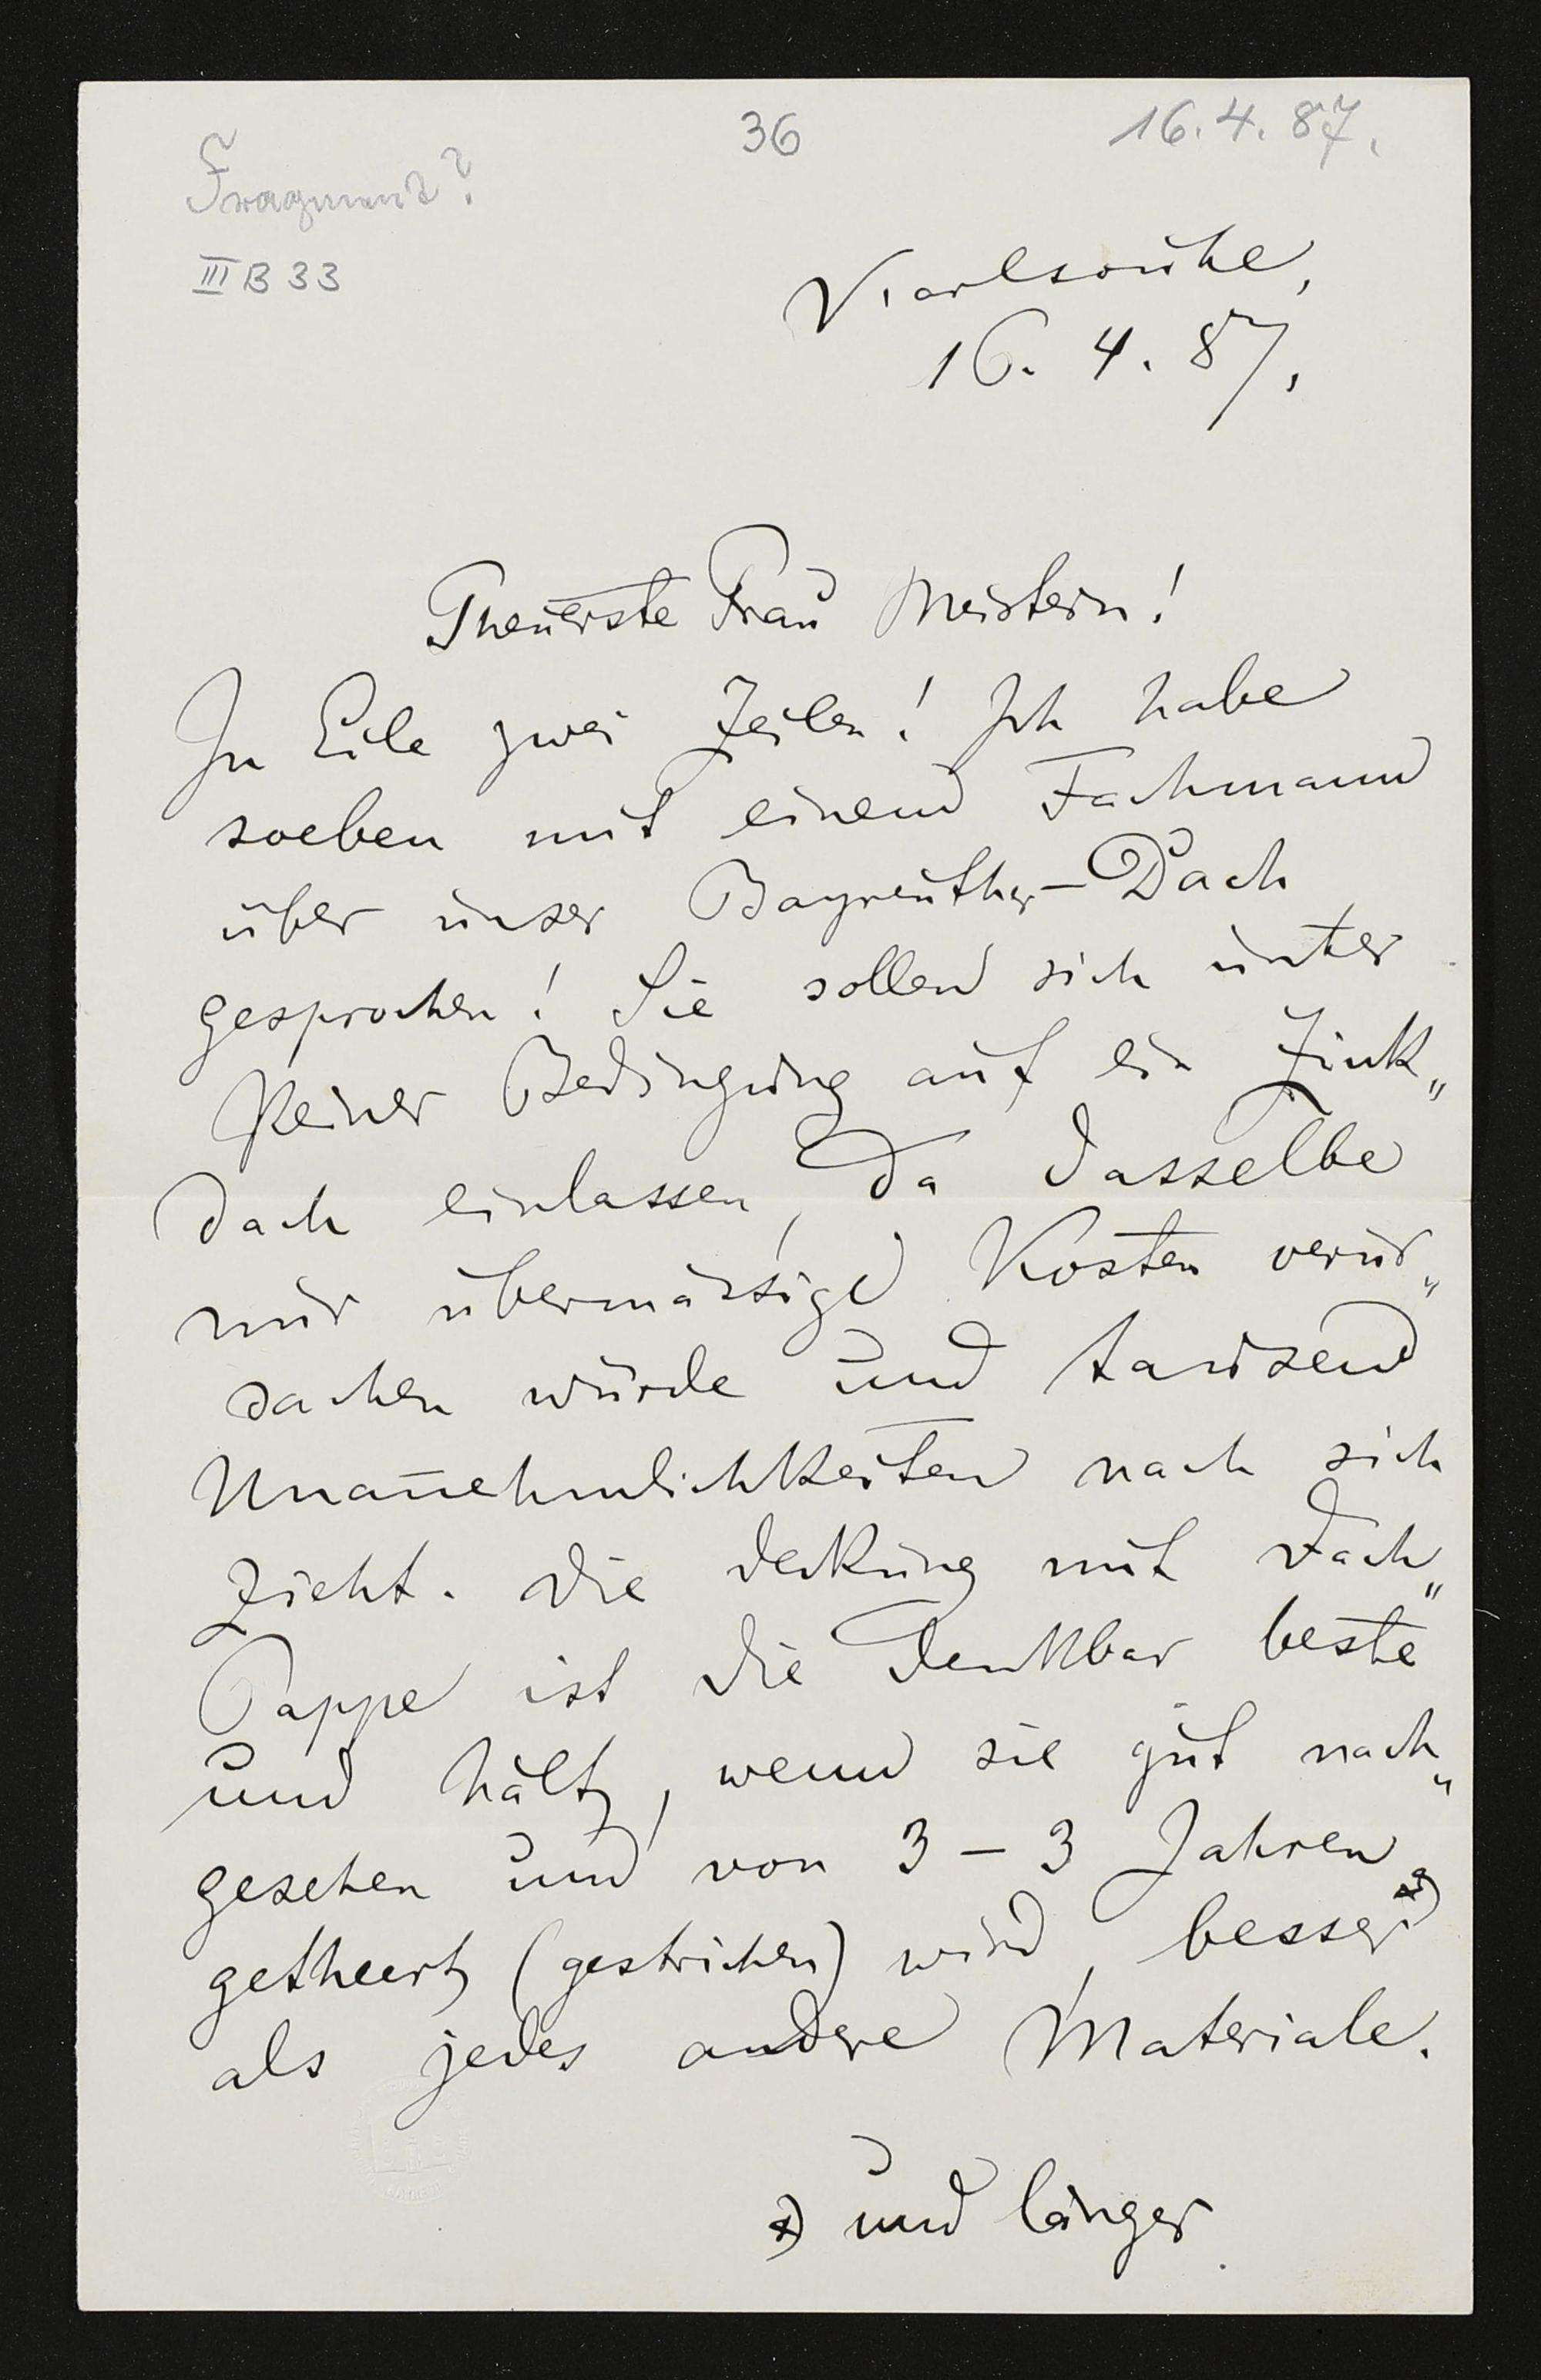 36
16.4.87.
Fragment?
III B 33
Karlsruhe,
16. 4. 87.
Theuerste Frau Meisterin!
In Eile zwei Zeilen! Ich habe
soeben mit einem Fachmann
über unser Bayreuther-Dach
gesprochen! Sie sollen sich unter
keiner Bedingung auf ein Zink„
dach einlassen, da dasselbe
nur übermässige Kosten verur„
sachen würde und tausend
Unañehmlichkeiten nach sich
zieht. Die Deckung mit Dach„
Pappe ist die denkbar beste
und hält, wenn sie gut nach„
gesehen und von 3 – 3 Jahren
getheert (gestrichen) wird, besser *)
als jedes andere Materiale.
*) und länger